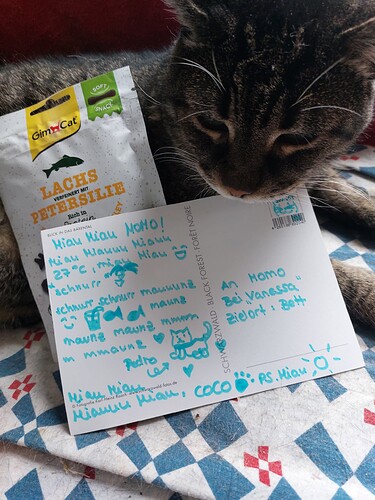 SOFT
SNACK
GimCat
LACHS
VERFEINERT MIT
PETERSILIE
Rich in
BLICK IN DAS BÄRENTAL
Miau Miau MOMO!
Miau Miauuu Miau
27°C, miau
*schnurr*
schnurr schnurr maunz
maunz
maunz maunz mmm
m mmaunz
Pedro
Miau Miau
Miauuu Miau, COCO PS. Miau
SCHWARZWALD BLACK FOREST FORÊT NOIRE
An Momo
Bei "Vanessa"
Zielort: Bett